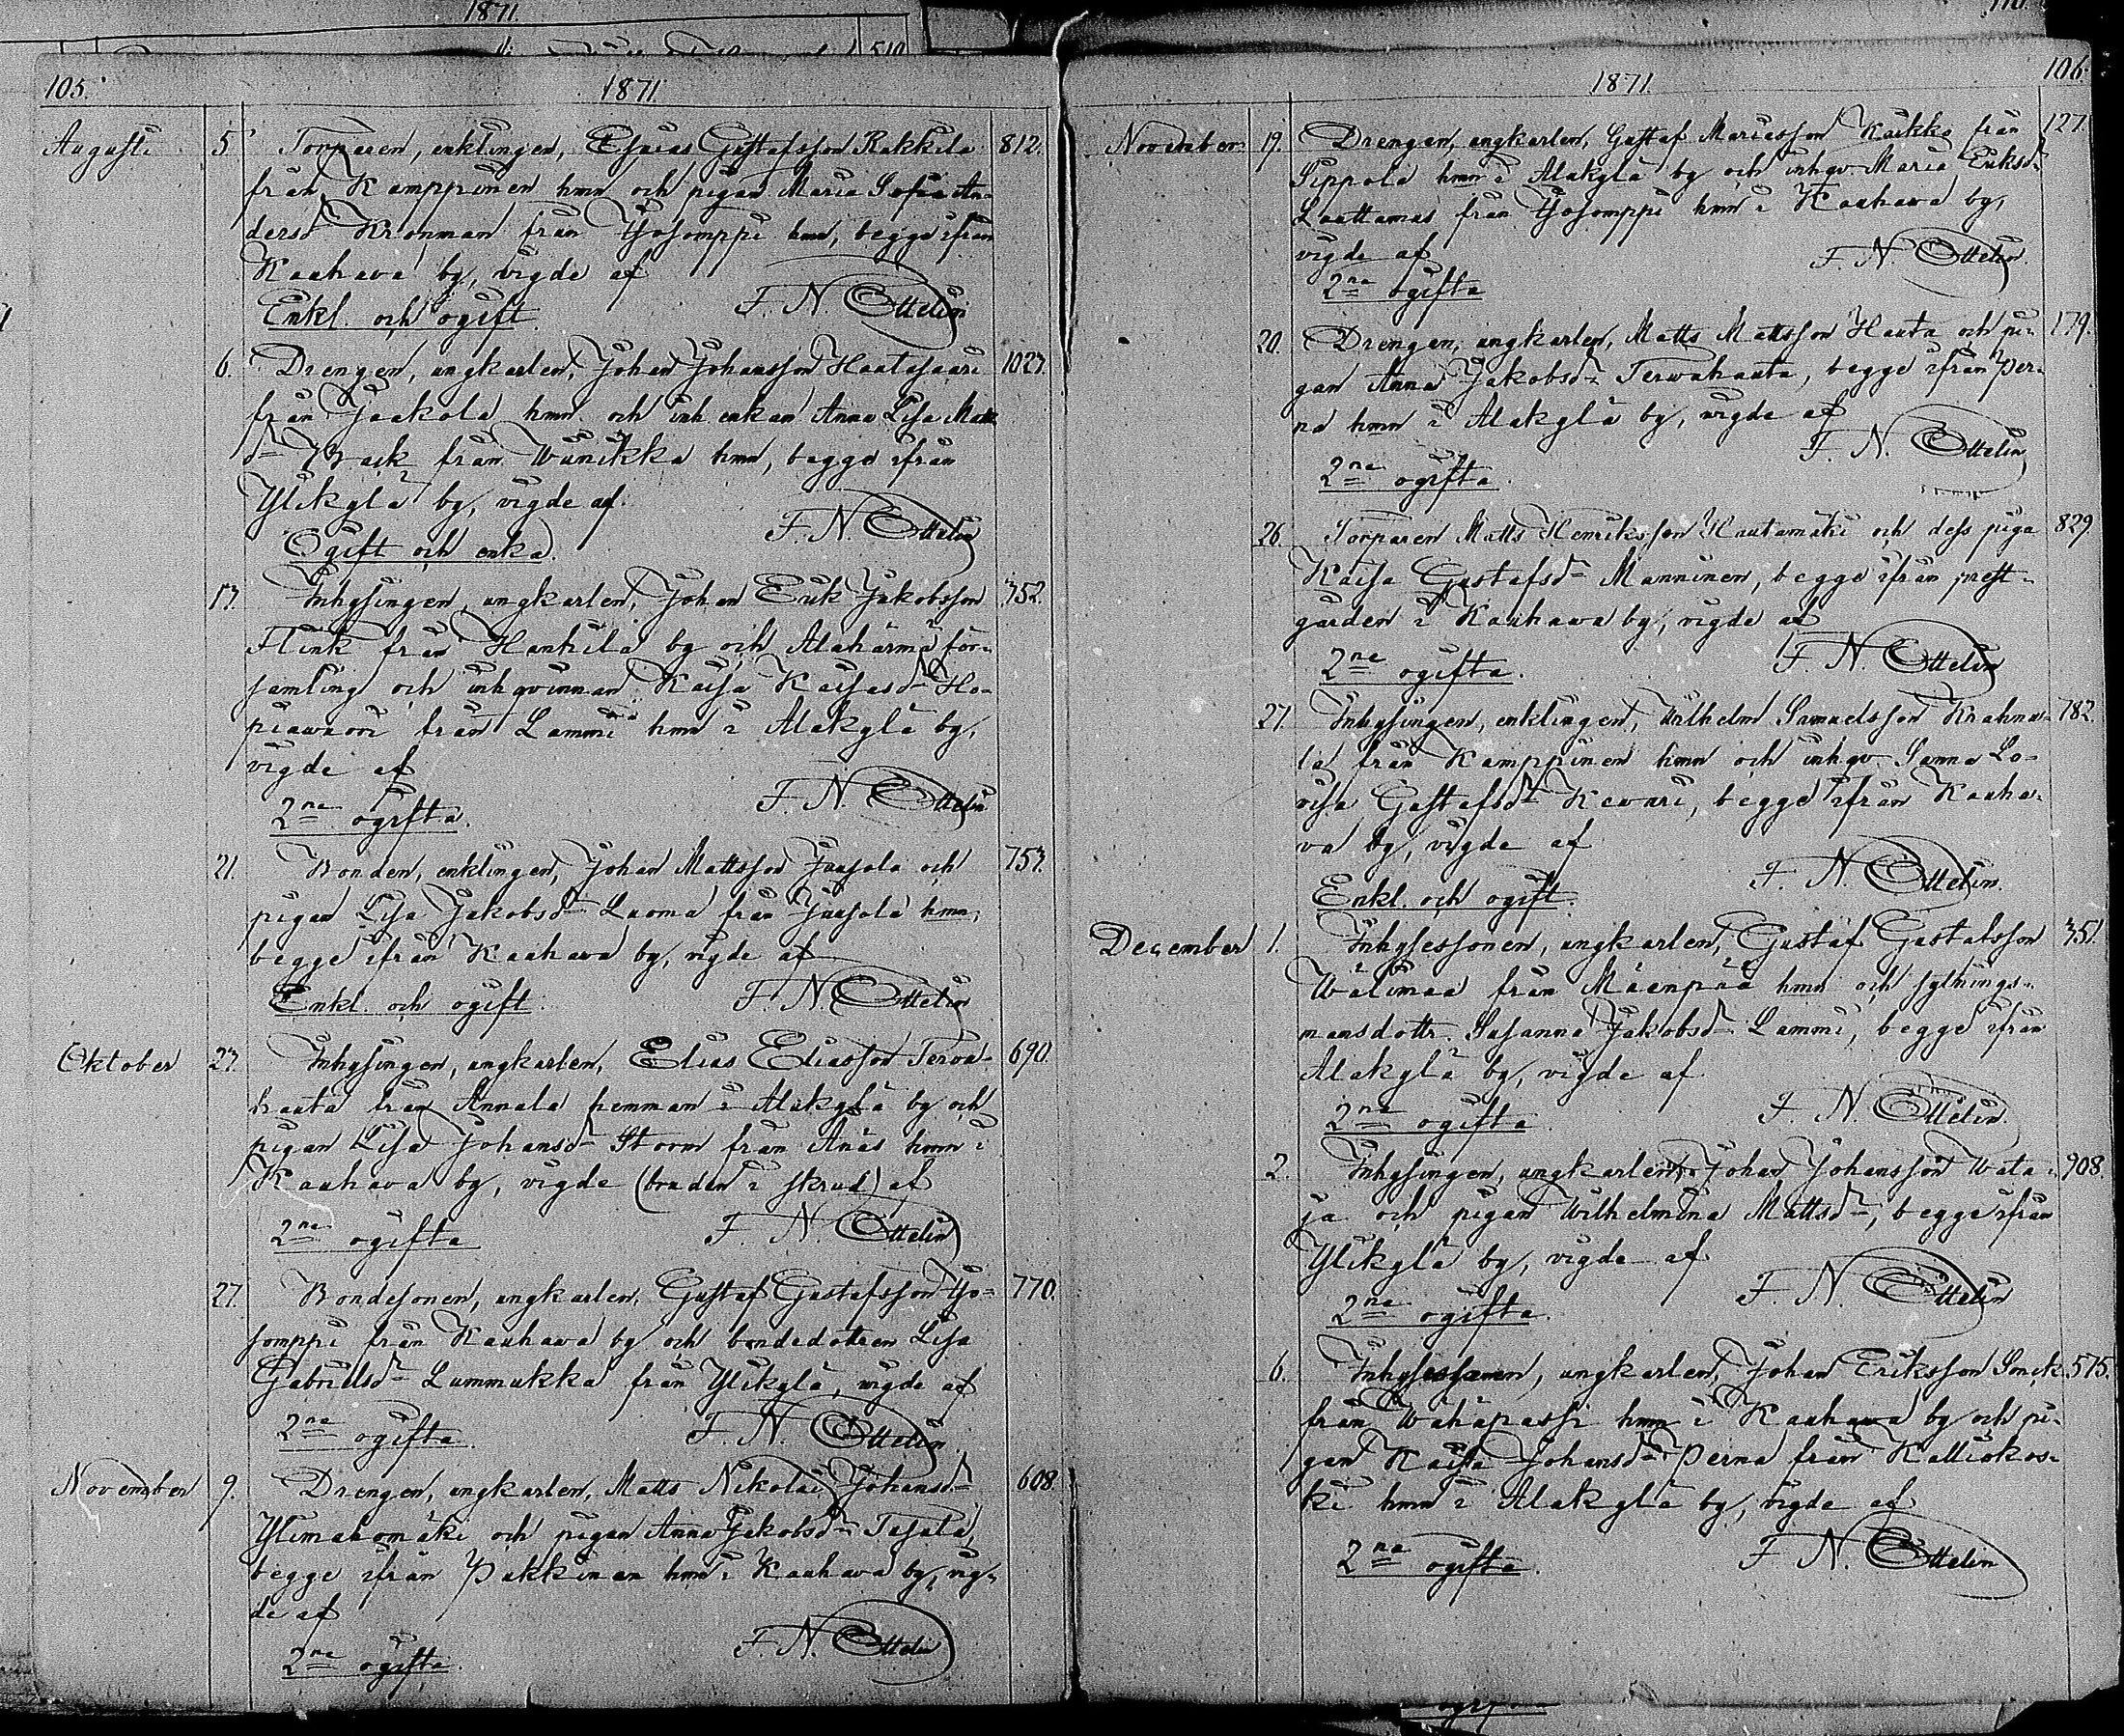 1871.
105.
1871.
Augusti 5. Torparen, enklingen, Esaias Gustafsson Rakkila 812.
från Kamppinen hmn och pigan Maria Sofia An-
dersd Kronman från Yösomppi hmn, begge ifrån
Kauhava by, vigde af
Enkl. och ogift. F. N. Ottelin
6. Drengen, ungkarlen, Johan Johansson Haatasaari 1027.
från Jaakola hmn och inh enkan Anna Lisa Matts
d Back från Wunikka hmn, begge ifrån
Ylikylä by, vigde af
Ogift och enka. F. N. Ottelin
13. Inhysingen, ungkarlen, Johan Erik Jakobsson 352.
Flink från Hankila by och Alahärmä för-
samling och inhqvinnan Kaisa Kaisasd Ho-
piavuori från Lammi hmn i Alakylä by,
vigde af
2ne ogifta. F. N. Ottelin
21. Bonden, enklingen, Johan Mattsson Jaasola och 753.
pigan Lisa Jakobsd Luoma från Jaasola hmn,
begge ifrån Kauhava by, vigde af
Enkl. och ogift. F. N. Ottelin
Oktober 23. Inhysingen, ungkarlen, Elias Eliasson Terva- 690.
hauta från Annala hemman i Alakylä by och
pigan Lisa Johansd Storm från Änäs hmn i
Kauhava by, vigde (bruden i skrud) af
2ne ogifta F. N. Ottelin
27. Bondesonen, ungkarlen, Gustaf Gustafsson Yö- 770.
somppi från Kauhava by och bondedottren Lisa
Gabrielsd Lummukka från Ylikylä, vigde af
2ne ogifta. F. N. Ottelin
November 9. Drengen, ungkarlen, Matts Nikolai Johansd 608.
Ylimahomäki och pigan Anna Jakobsd Tasala,
begge ifrån Pukkinen hmn i Kauhava by, vig-
de af
2ne ogifta. F. N. Ottelin
106.
1871.
November 19. Drengen, ungkarlen, Gustaf Mariasson Kaikko från 127.
Sippola hmn i Alakylä by och inhqv. Maria Eriksd
Lauttamus från Yösomppi hmn i Kauhava by,
vigde af F. N. Ottelin.
2ne ogifta
20. Drengen, ungkarlen, Matts Mattsson Hauta och pi- 179.
gan Anna Jakobsd Tervahauta, begge ifrån Per-
na hmn i Alakylä by, vigde af
F. N. Ottelin
2ne ogifta.
26. Torparen Matts Henriksson Hautamäki och dess piga 829.
Kaisa Gustafsd Manninen, begge ifrån prest-
gården i Kauhava by, vigde af
2ne ogifta. F. N. Ottelin
27. Inhysingen, enklingen, Wilhelm Samuelsson Krahnu- 782.
la från Kamppinen hmn och inhqv Sanna Lo-
visa Gustafsd Kevari, begge ifrån Kauha-
va by, vigde af
Enkl. och ogift. F. N. Ottelin.
December 1. Inhysessonen, ungkarlen, Gustaf Gustafsson 351.
Wälimaa från Mäenpää hmn och sytnings-
mansdottr. Susanna Jakobsd Lammi, begge ifrån
Alakylä by, vigde af
2ne ogifta F. N. Ottelin.
2. Inhysingen, ungkarlen, Johan Johansson Wata- 908.
ja och pigan Wilhelmina Mattsd, begge ifrån
Ylikylä by, vigde af
2ne ogifta. F. N. Ottelin
6. Inhysessonen, ungkarlen, Johan Eriksson Smik 515.
från Wähäpassi hmn i Kauhava by och pi-
gan Kaisa Johansd Perna från Kalliokos-
ki hmn i Alakylä by, vigde af
2ne ogifta. F. N. Ottelin